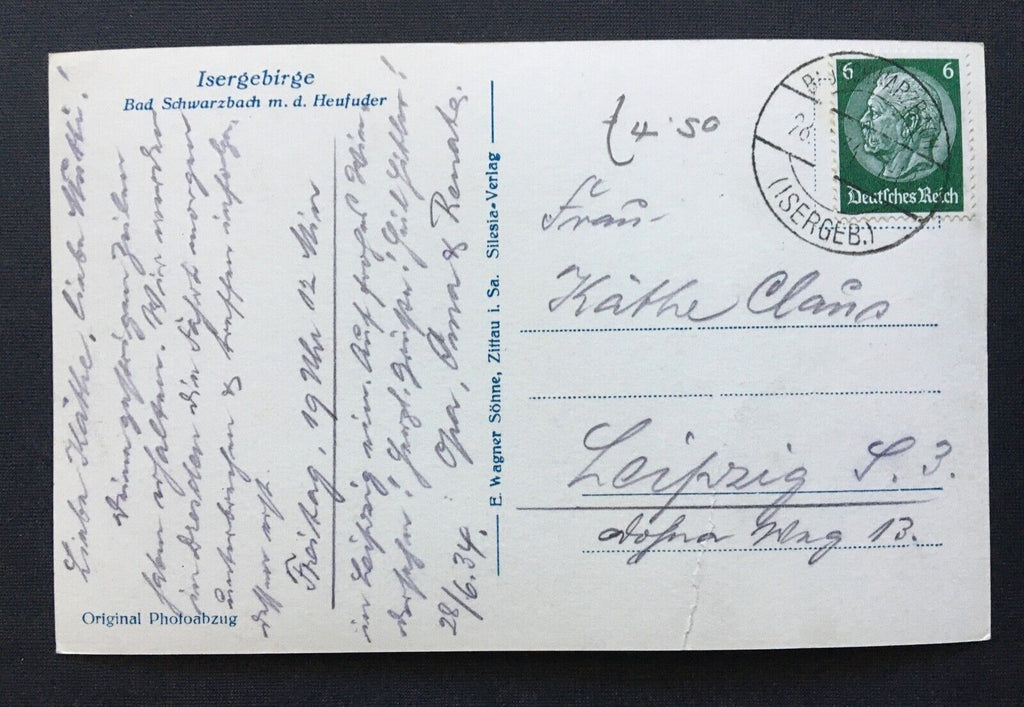 Isergebirge
Bad Schwarzbach m. d. Heufuder
Liebe Käthe, liebe Mutti!
haben erhalten. Wir werden
in Dresden die Fahrt morgen
unterbrechen & treffen
erst
Freitag, 19 Uhr 12 Min
in Leipzig ein. Auf frohes Wieder
dersehen! Herzl. Grüße!
Opa, Oma & Renate.
28/6.34.
Original Photoabzug
E. Wagner Söhne, Zittau i. Sa. Silesia-Verlag
4.50
6 6
Deutsches Reich
(ISERGEB.)
Frau
Käthe Claus
Leipzig S. 3.
Dohna Weg 13.